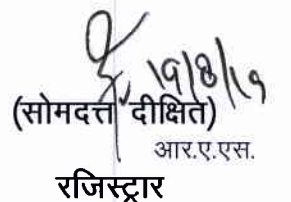 19/8/19
(सोमदत्त दीक्षित)
आर.ए.एस.
रजिस्ट्रार